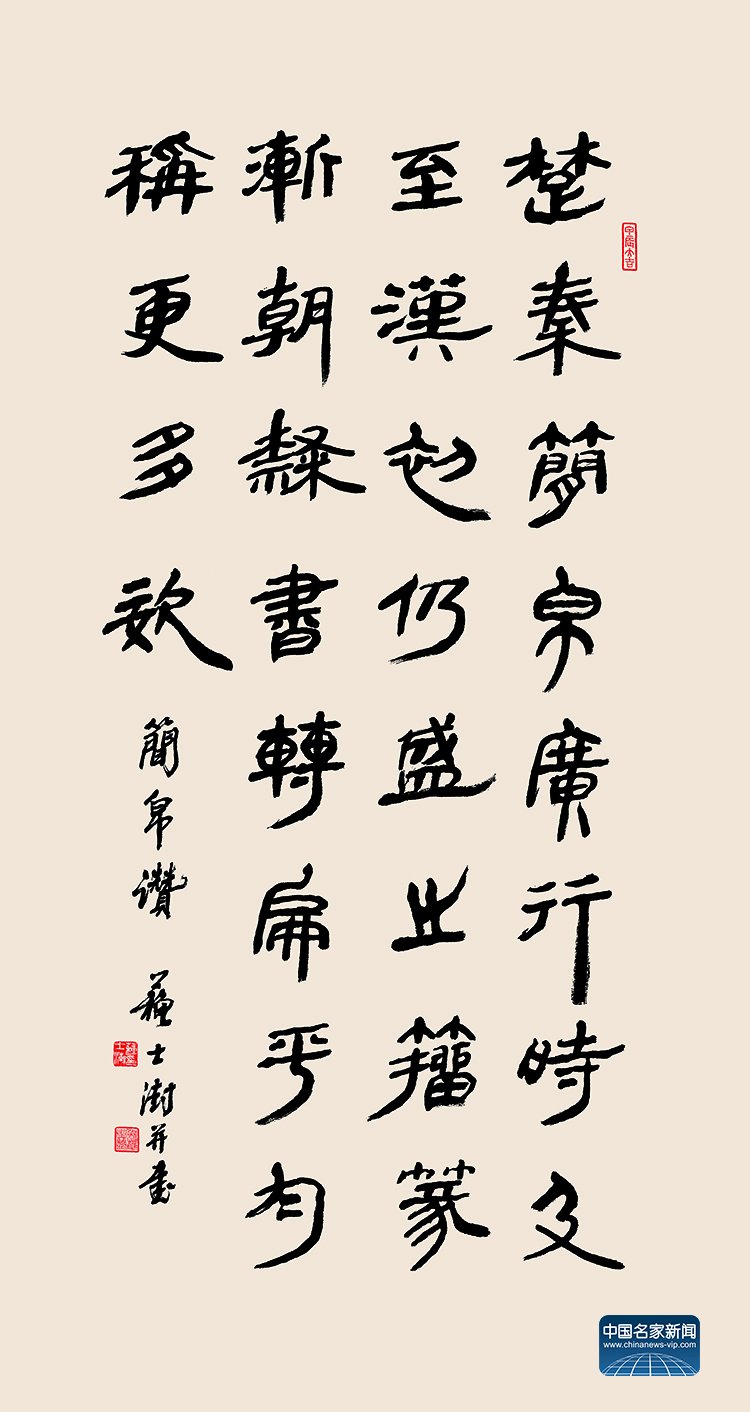 甲辰大吉
楚秦簡帛廣行時及
至漢初仍盛之籀篆
漸朝隸書轉扁平勻
稱更多姿
簡帛讚 蘇士澍并書
中国名家新闻
www.chinanews-vip.com